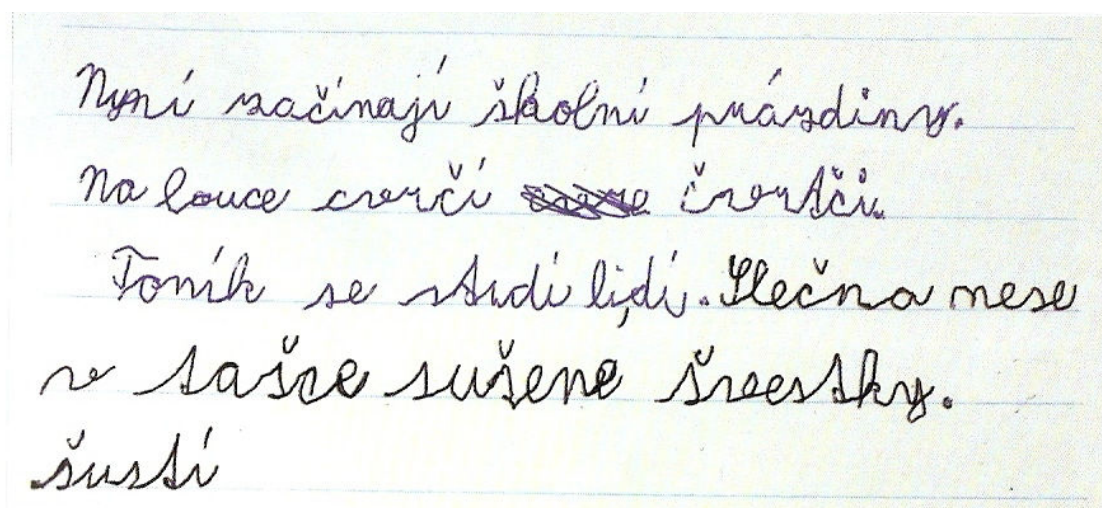 Nyní začínají školní prázdiny.
Na louce cvrčí čvrtči.
Toník se studi lidí. Slečna nese
v tašce sušene šveestky.
šustí